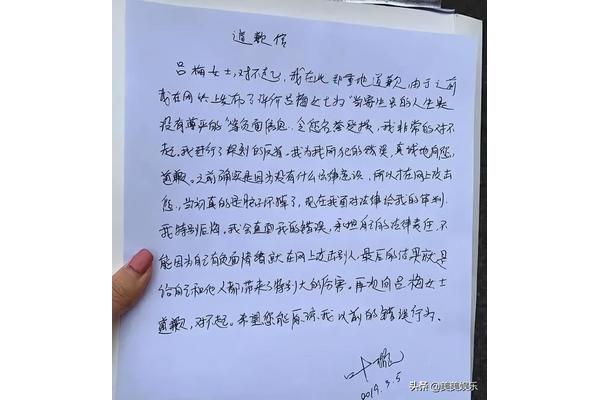 道歉信
吕梅女士,对不起了,我在此郑重地道歉,由于之前
我在网络上发布了评价吕梅女士为"当寄生虫的人生是
没有尊严的"等负面信息,令您名誉受损,我非常的对不
起。我进行了深刻的反省。我为我所犯的错误,真诚地向您
道歉。之前确实是因为没有什么法律意识,所以才在网上攻击
您,当初真的是肚子坏掉了,现在我面对法律给我的审判.
我特别后悔,我会直面我的错误,承担自己的法律责任,不
能因为自己有负面情绪就在网上攻击别人,最后的结果就是
给自己和他人都带来了特别大的伤害。再次向吕梅女士
道歉,对不起。希望您能原谅我以前的错误行为.
叶璇
2019.5.5
头条 @美美娱乐